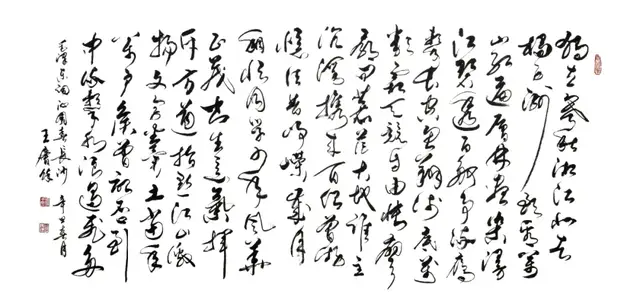 独立寒秋湘江北去
橘子洲头看万
山红遍层林尽染漫
江碧透百舸争流鹰
击长空鱼翔浅底万
类霜天竞自由怅寥
廓问苍茫大地谁主
沉浮携来百侣曾游
忆往昔峥嵘岁月
稠恰同学少年风华
正茂书生意气挥
斥方遒指点江山激
扬文字粪土当年
万户侯曾记否到
中流击水浪遏飞舟
毛泽东词沁园春长沙 辛丑春月
王